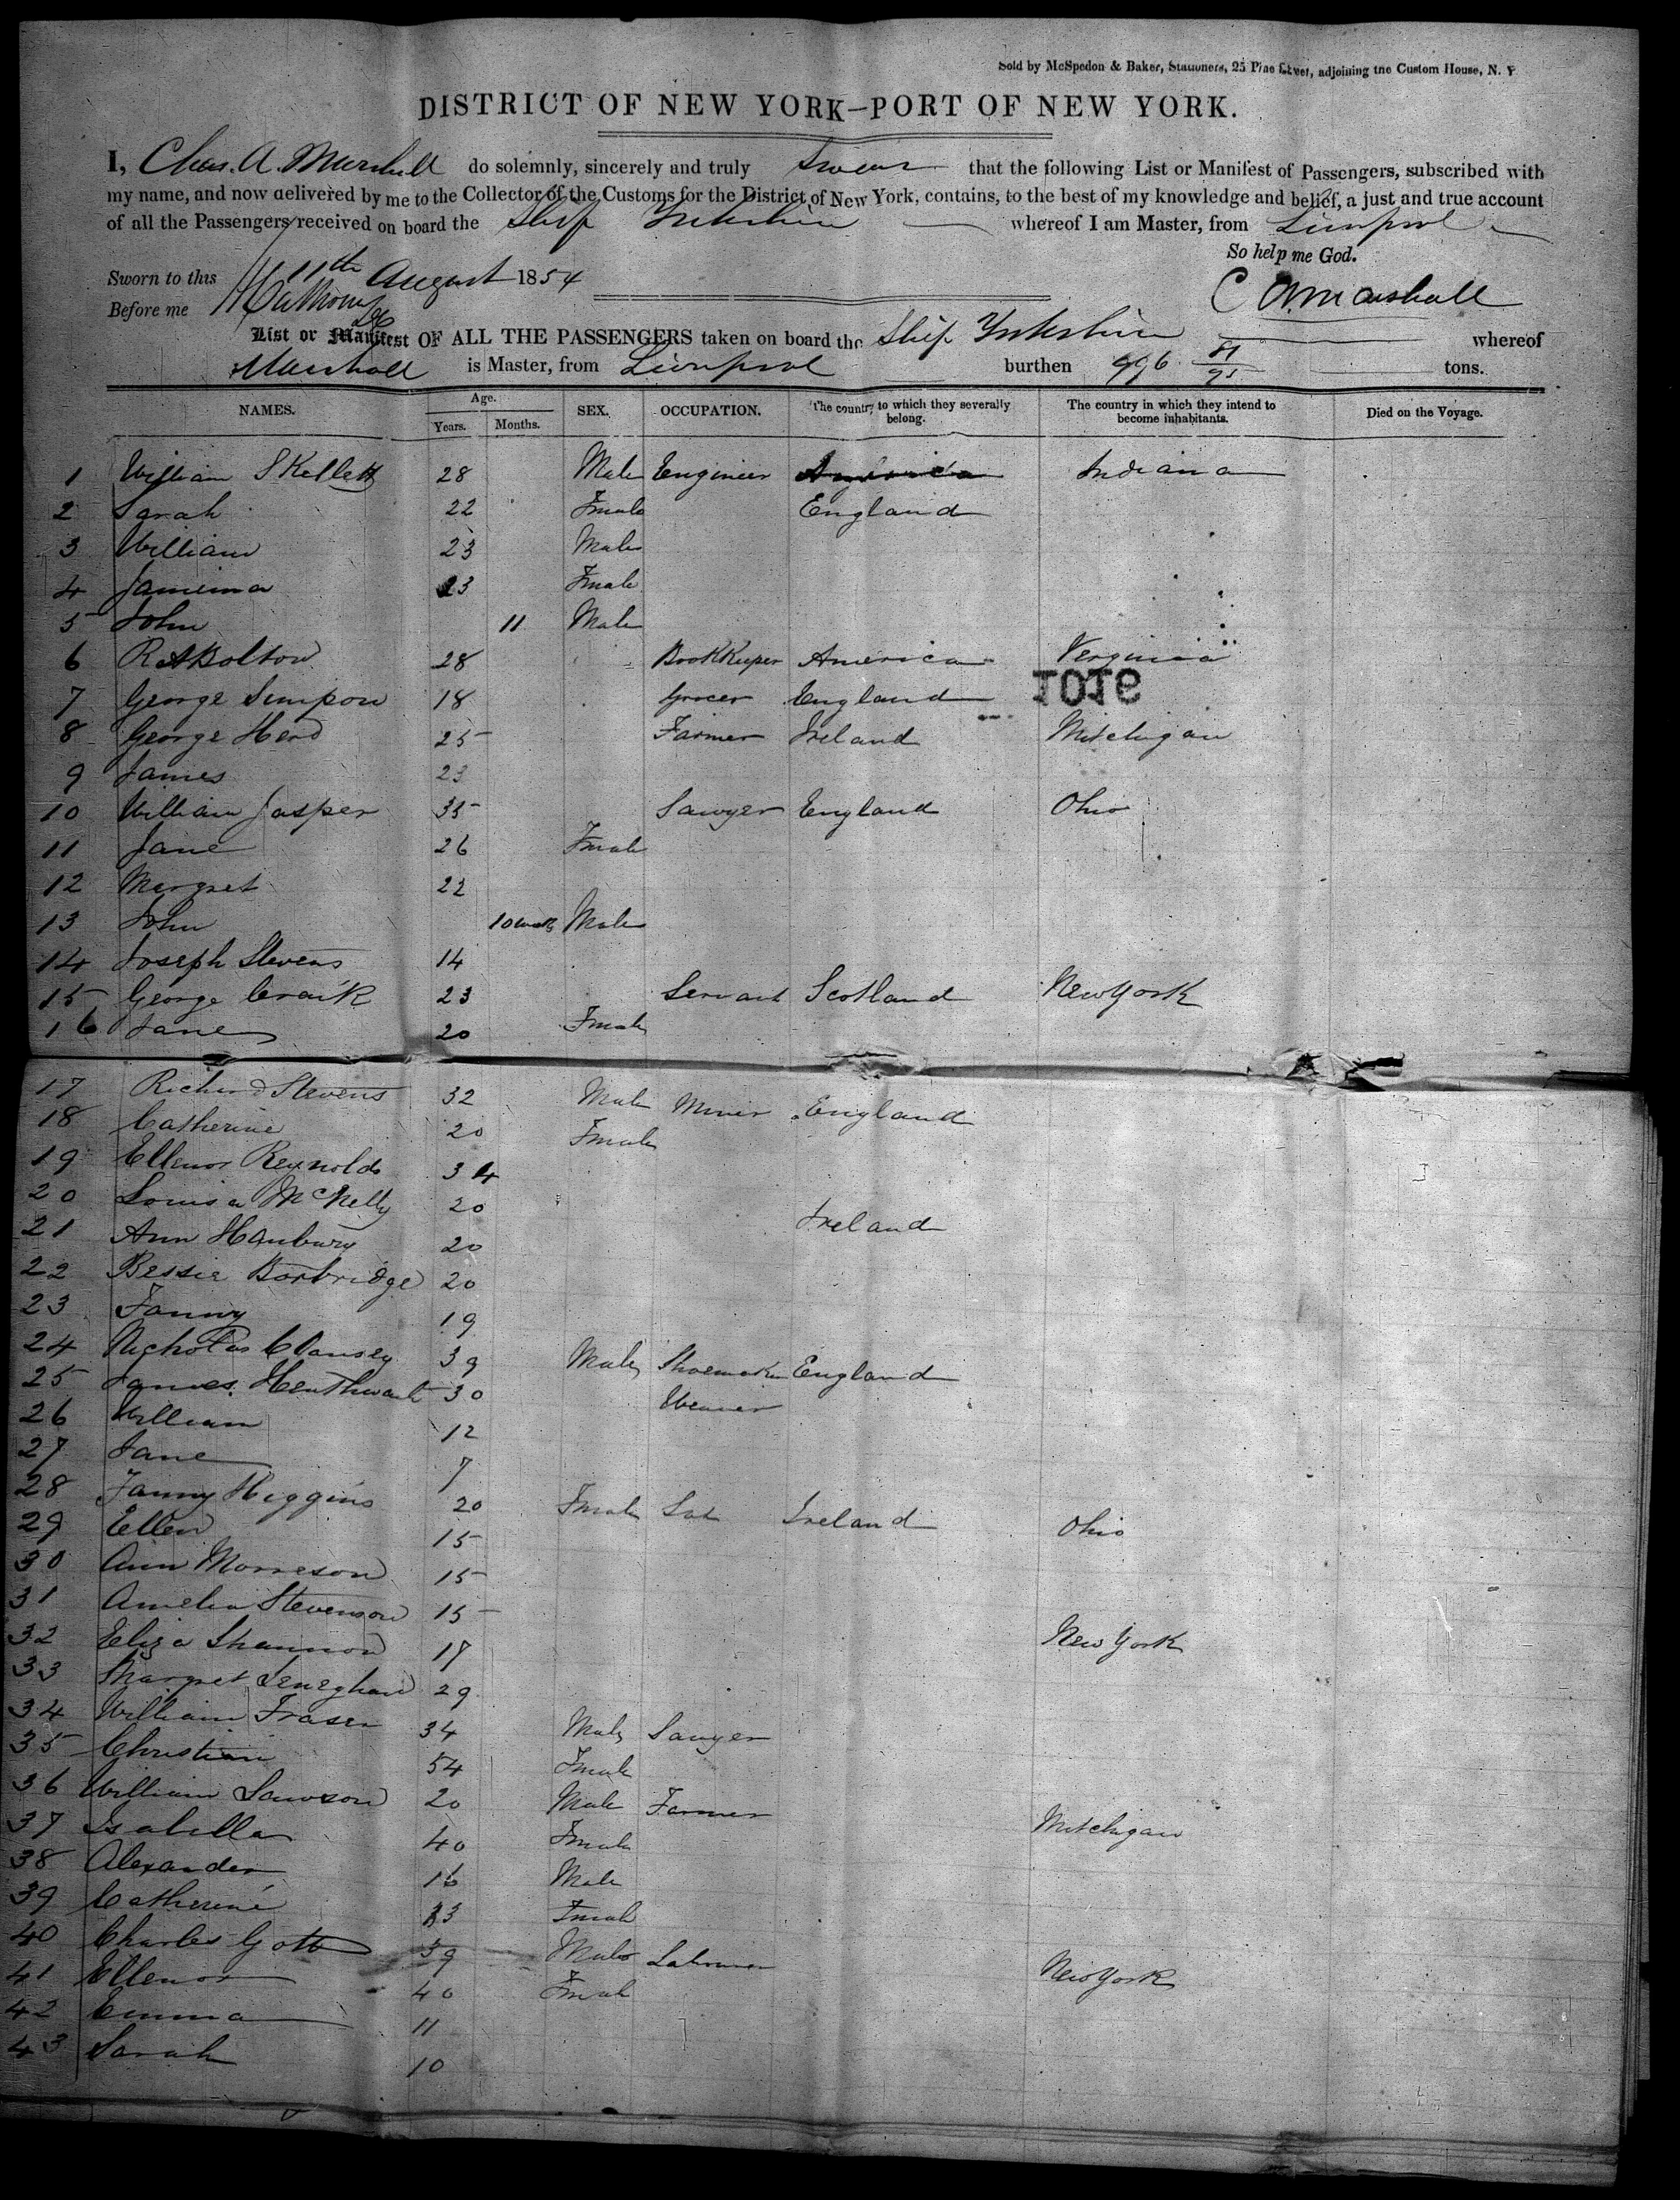 Sold by McSpedon & Baker, Stationers, 25 Pine Street, adjoining the Custom House, N. Y.
DISTRICT OF NEW YORK—PORT OF NEW YORK.
I, Chas. A. Marshall do solemnly, sincerely and truly Swear that the following List or Manifest of Passengers, subscribed with
my name, and now delivered by me to the Collector of the Customs for the District of New York, contains, to the best of my knowledge and belief, a just and true account
of all the Passengers received on board the Ship Yorkshire whereof I am Master, from Liverpool
So help me God.
Sworn to this 11th August 1854
C A Marshall
Before me
List or Manifest OF ALL THE PASSENGERS taken on board the Ship Yorkshire whereof
Marshall is Master, from Liverpool burthen 996 tons.
NAMES. Age. Years. Months. SEX. OCCUPATION. The country to which they severally belong. The country in which they intend to become inhabitants. Died on the Voyage.
1 William Skellett 28 Male Engineer America Indiana
2 Sarah 22 Female England
3 William 23 Male
4 Jamima 23 Female
5 John 11 Male
6 R A Bolton 28 Bookkeeper America Verginia
7 George Simpson 18 Grocer England
8 George Herd 25 Farmer Ireland Mitchigan
9 James 23
10 William Jasper 35 Sawyer England Ohio
11 Jane 26 Female
12 Margret 22
13 John 10 weeks Male
14 Joseph Stevens 14
15 George Craik 23 Servant Scotland New York
16 Jane 20 Female
17 Richard Stevens 32 Male Miner England
18 Catherine 20 Female
19 Ellenor Reynolds 34
20 Louisa McNelly 20 Ireland
21 Ann Hanbury 20
22 Bessie Borbridge 20
23 Fanny 19
24 Nicholas Clansey 39 Male Shoemaker England
25 James 30 Weaver
26 William 12
27 Jane 7
28 Fanny Higgins 20 Female Ireland Ohio
29 Ellen 15
30 Ann Morreson 15
31 Amelia Stevenson 15
32 Eliza Shannon 17 New York
33 Margret Leneghan 29
34 William Fraser 34 Male Sawyer
35 Christian 54 Female
36 William Lawson 20 Male Farmer Mitchigan
37 Isabella 40 Female
38 Alexander 16 Male
39 Catherine 33 Female
40 Charles Gott 39 Male Labourer New York
41 Ellenor 40 Female
42 Emma 11
43 Sarah 10